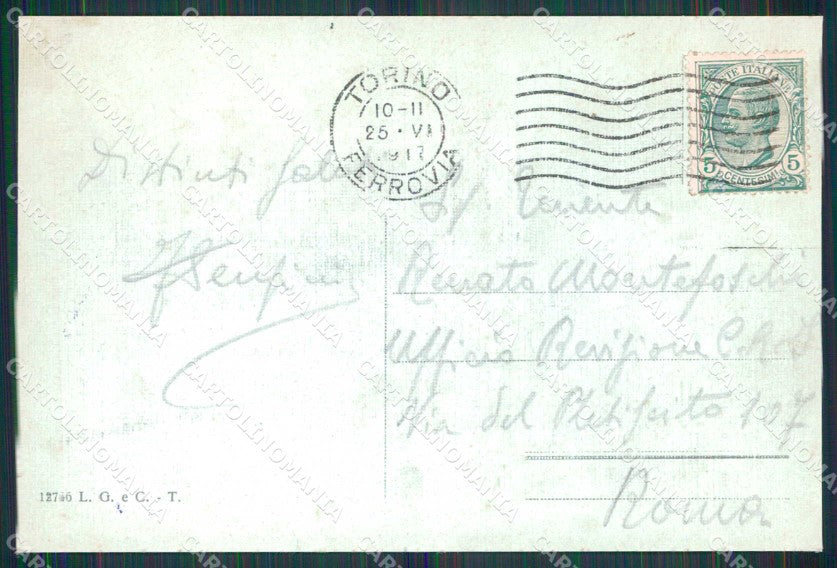 TORINO
10-11
25 · VI
1917
FERROVIA
POSTE ITALIANE
5 5
CENTESIMI
Distinti
Tenente
Renato Montefoschi
Ufficio Revisione
Via del Plebiscito 107
Roma
12746 L. G. e C. - T.
CARTOLINOMANIA